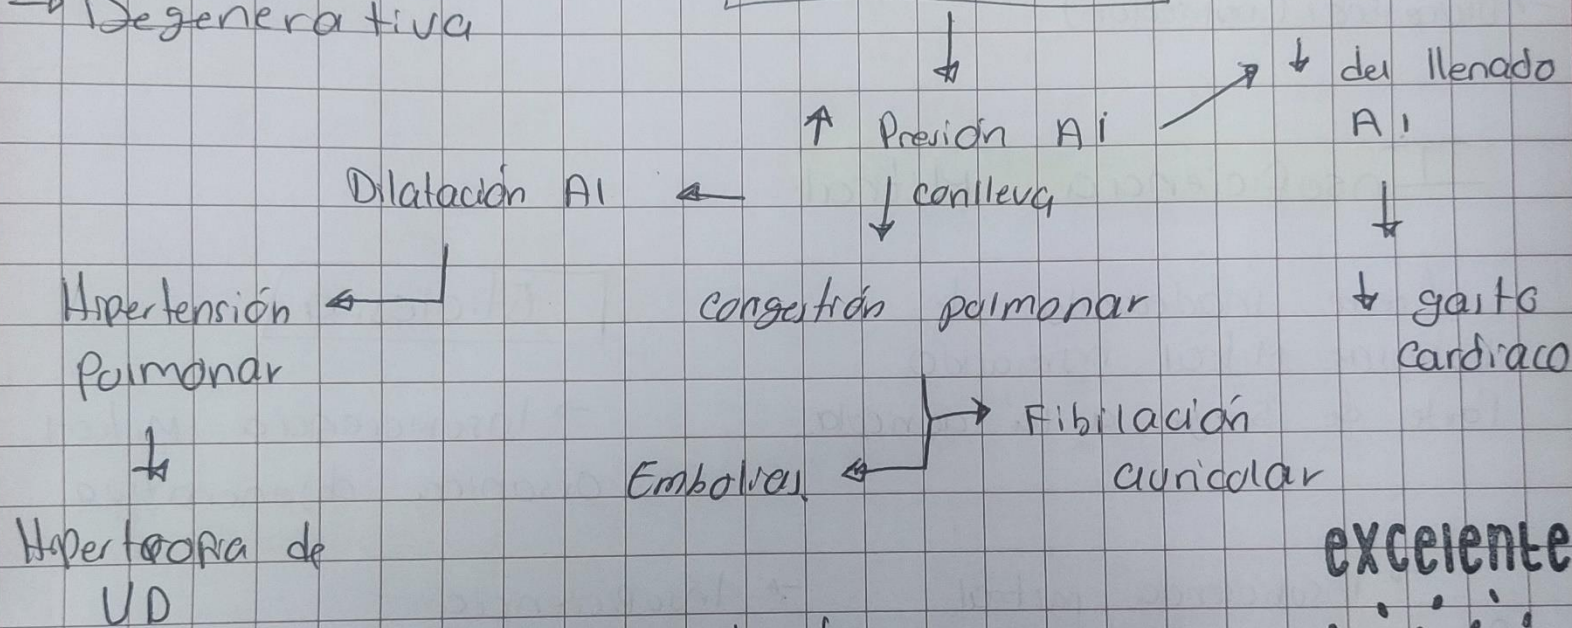 Degenerativa
↓ del llenado
AI
↑ Presión Ai
Dilatación AI
conlleva
Hipertensión
Pulmonar
congestión pulmonar
↓ gasto
cardiaco
Fibilación
auricular
Embolias
Hipertrofia de
VD
excelente